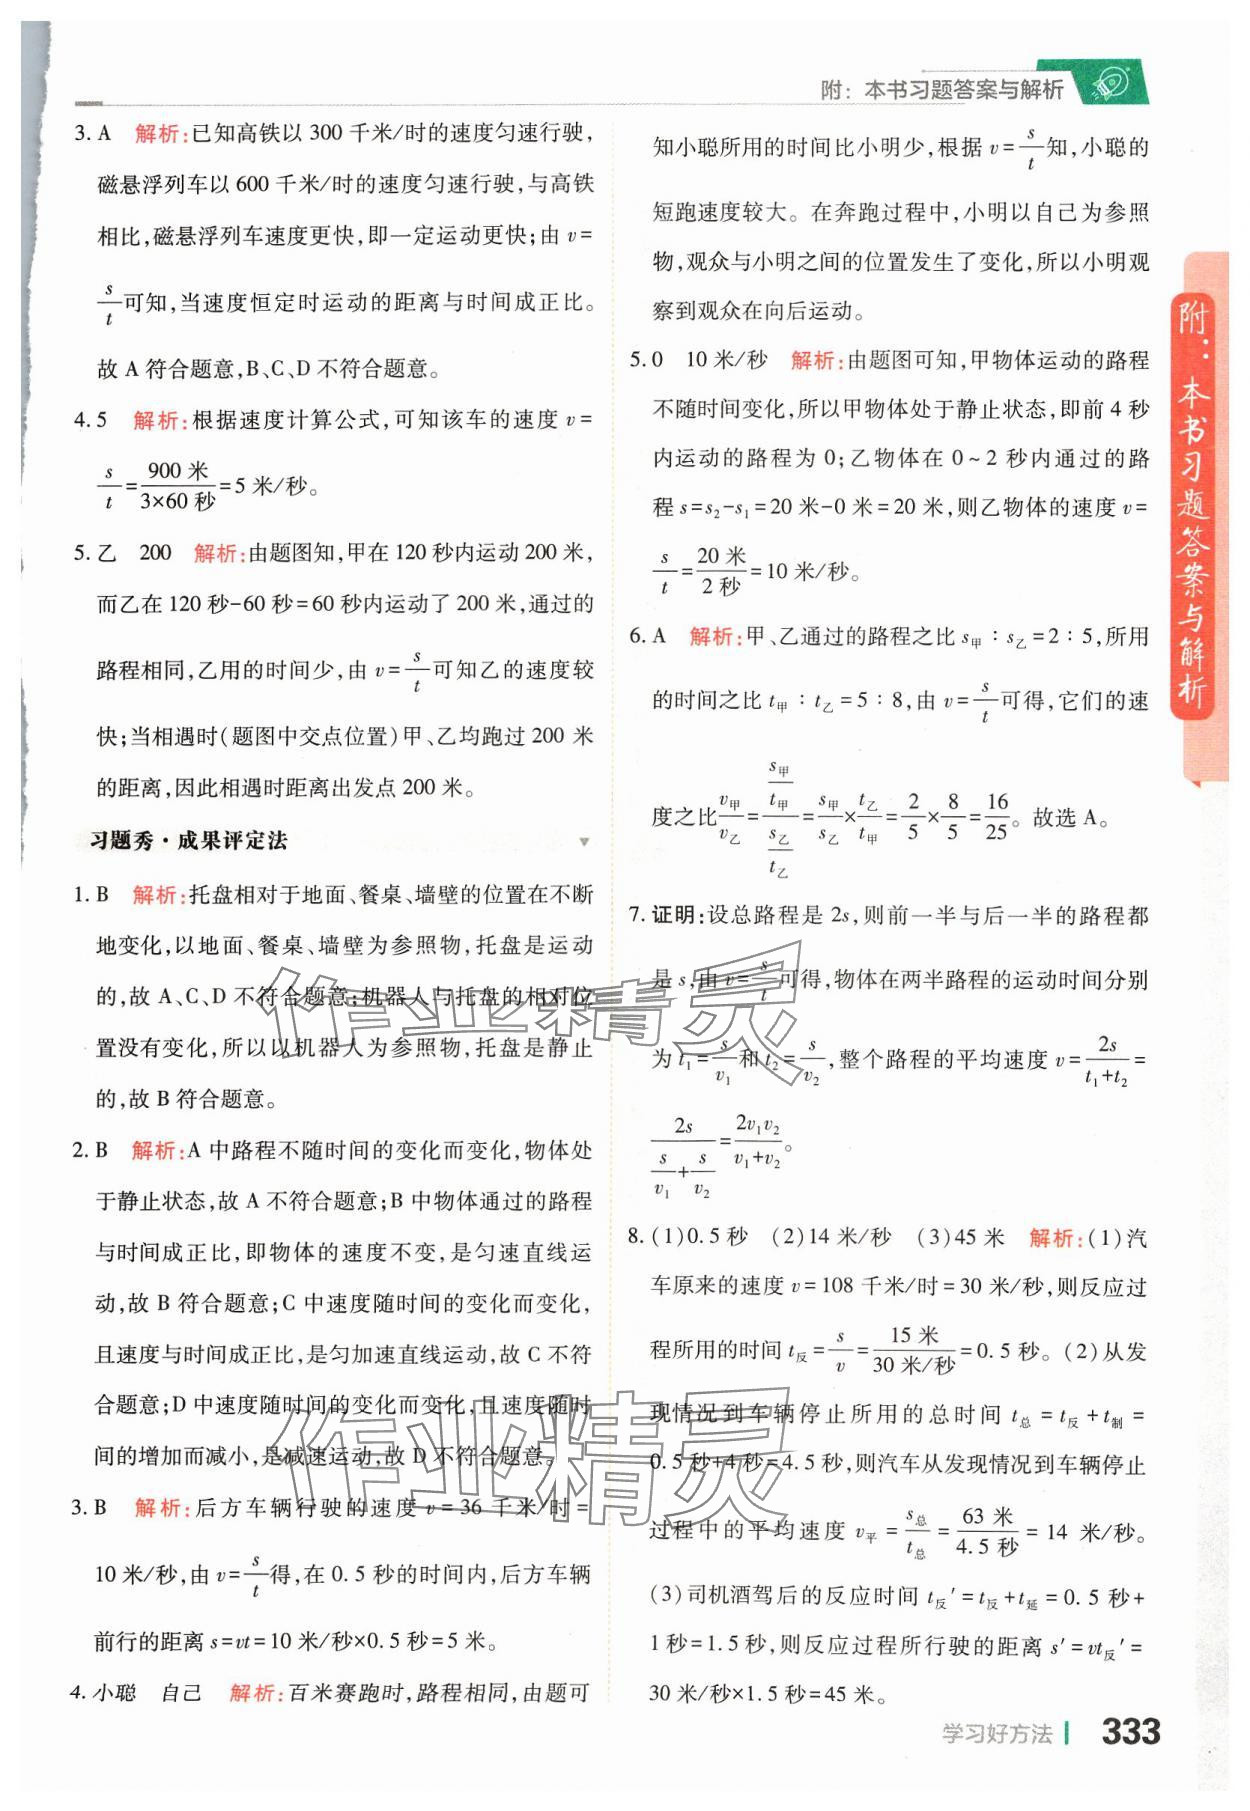 附：本书习题答案与解析
3. A 解析:已知高铁以 300 千米/时的速度匀速行驶,
磁悬浮列车以 600 千米/时的速度匀速行驶,与高铁
相比,磁悬浮列车速度更快,即一定运动更快;由 v=
s/t可知,当速度恒定时运动的距离与时间成正比。
故 A 符合题意,B、C、D 不符合题意。
4. 5 解析:根据速度计算公式,可知该车的速度 v=
s/t=900 米/3×60 秒=5 米/秒。
5. 乙 200 解析:由题图知,甲在 120 秒内运动 200 米,
而乙在 120 秒-60 秒=60 秒内运动了 200 米,通过的
路程相同,乙用的时间少,由 v=s/t可知乙的速度较
快;当相遇时(题图中交点位置)甲、乙均跑过 200 米
的距离,因此相遇时距离出发点 200 米。
习题秀·成果评定法
1. B 解析:托盘相对于地面、餐桌、墙壁的位置在不断
地变化,以地面、餐桌、墙壁为参照物,托盘是运动
的,故 A、C、D 不符合题意;机器人与托盘的相对位
置没有变化,所以以机器人为参照物,托盘是静止
的,故 B 符合题意。
2. B 解析:A 中路程不随时间的变化而变化,物体处
于静止状态,故 A 不符合题意;B 中物体通过的路程
与时间成正比,即物体的速度不变,是匀速直线运
动,故 B 符合题意;C 中速度随时间的变化而变化,
且速度与时间成正比,是匀加速直线运动,故 C 不符
合题意;D 中速度随时间的变化而变化,且速度随时
间的增加而减小,是减速运动,故 D 不符合题意。
3. B 解析:后方车辆行驶的速度 v=36 千米/时=
10 米/秒,由 v=s/t得,在 0.5 秒的时间内,后方车辆
前行的距离 s=vt=10 米/秒×0.5 秒=5 米。
4. 小聪 自己 解析:百米赛跑时,路程相同,由题可
知小聪所用的时间比小明少,根据 v=s/t知,小聪的
短跑速度较大。在奔跑过程中,小明以自己为参照
物,观众与小明之间的位置发生了变化,所以小明观
察到观众在向后运动。
5. 0 10 米/秒 解析:由题图可知,甲物体运动的路程
不随时间变化,所以甲物体处于静止状态,即前 4 秒
内运动的路程为 0;乙物体在 0~2 秒内通过的路
程 s=s₂-s₁=20 米-0 米=20 米,则乙物体的速度 v=
s/t=20 米/2 秒=10 米/秒。
6. A 解析:甲、乙通过的路程之比 s甲∶s乙=2∶5,所用
的时间之比 t甲∶t乙=5∶8,由 v=s/t可得,它们的速
度之比v甲/v乙=(s甲/t甲)/(s乙/t乙)=s甲/s乙×t乙/t甲=2/5×8/5=16/25。故选 A。
7. 证明:设总路程是 2s,则前一半与后一半的路程都
是 s,由 v=s/t可得,物体在两半路程的运动时间分别
为 t₁=s/v₁和 t₂=s/v₂,整个路程的平均速度 v=2s/(t₁+t₂)=
2s/(s/v₁+s/v₂)=2v₁v₂/(v₁+v₂)。
8. (1)0.5 秒 (2)14 米/秒 (3)45 米 解析:(1)汽
车原来的速度 v=108 千米/时=30 米/秒,则反应过
程所用的时间 t反=s/v=15 米/30 米/秒=0.5 秒。(2)从发
现情况到车辆停止所用的总时间 t总=t反+t制=
0.5 秒+4秒=4.5 秒,则汽车从发现情况到车辆停止
过程中的平均速度 v平=s总/t总=63 米/4.5 秒=14 米/秒。
(3)司机酒驾后的反应时间 t反′=t反+t延=0.5 秒+
1 秒=1.5 秒,则反应过程所行驶的距离 s′=vt反′=
30 米/秒×1.5 秒=45 米。
附：本书习题答案与解析
作业精灵
作业精灵
学习好方法 333